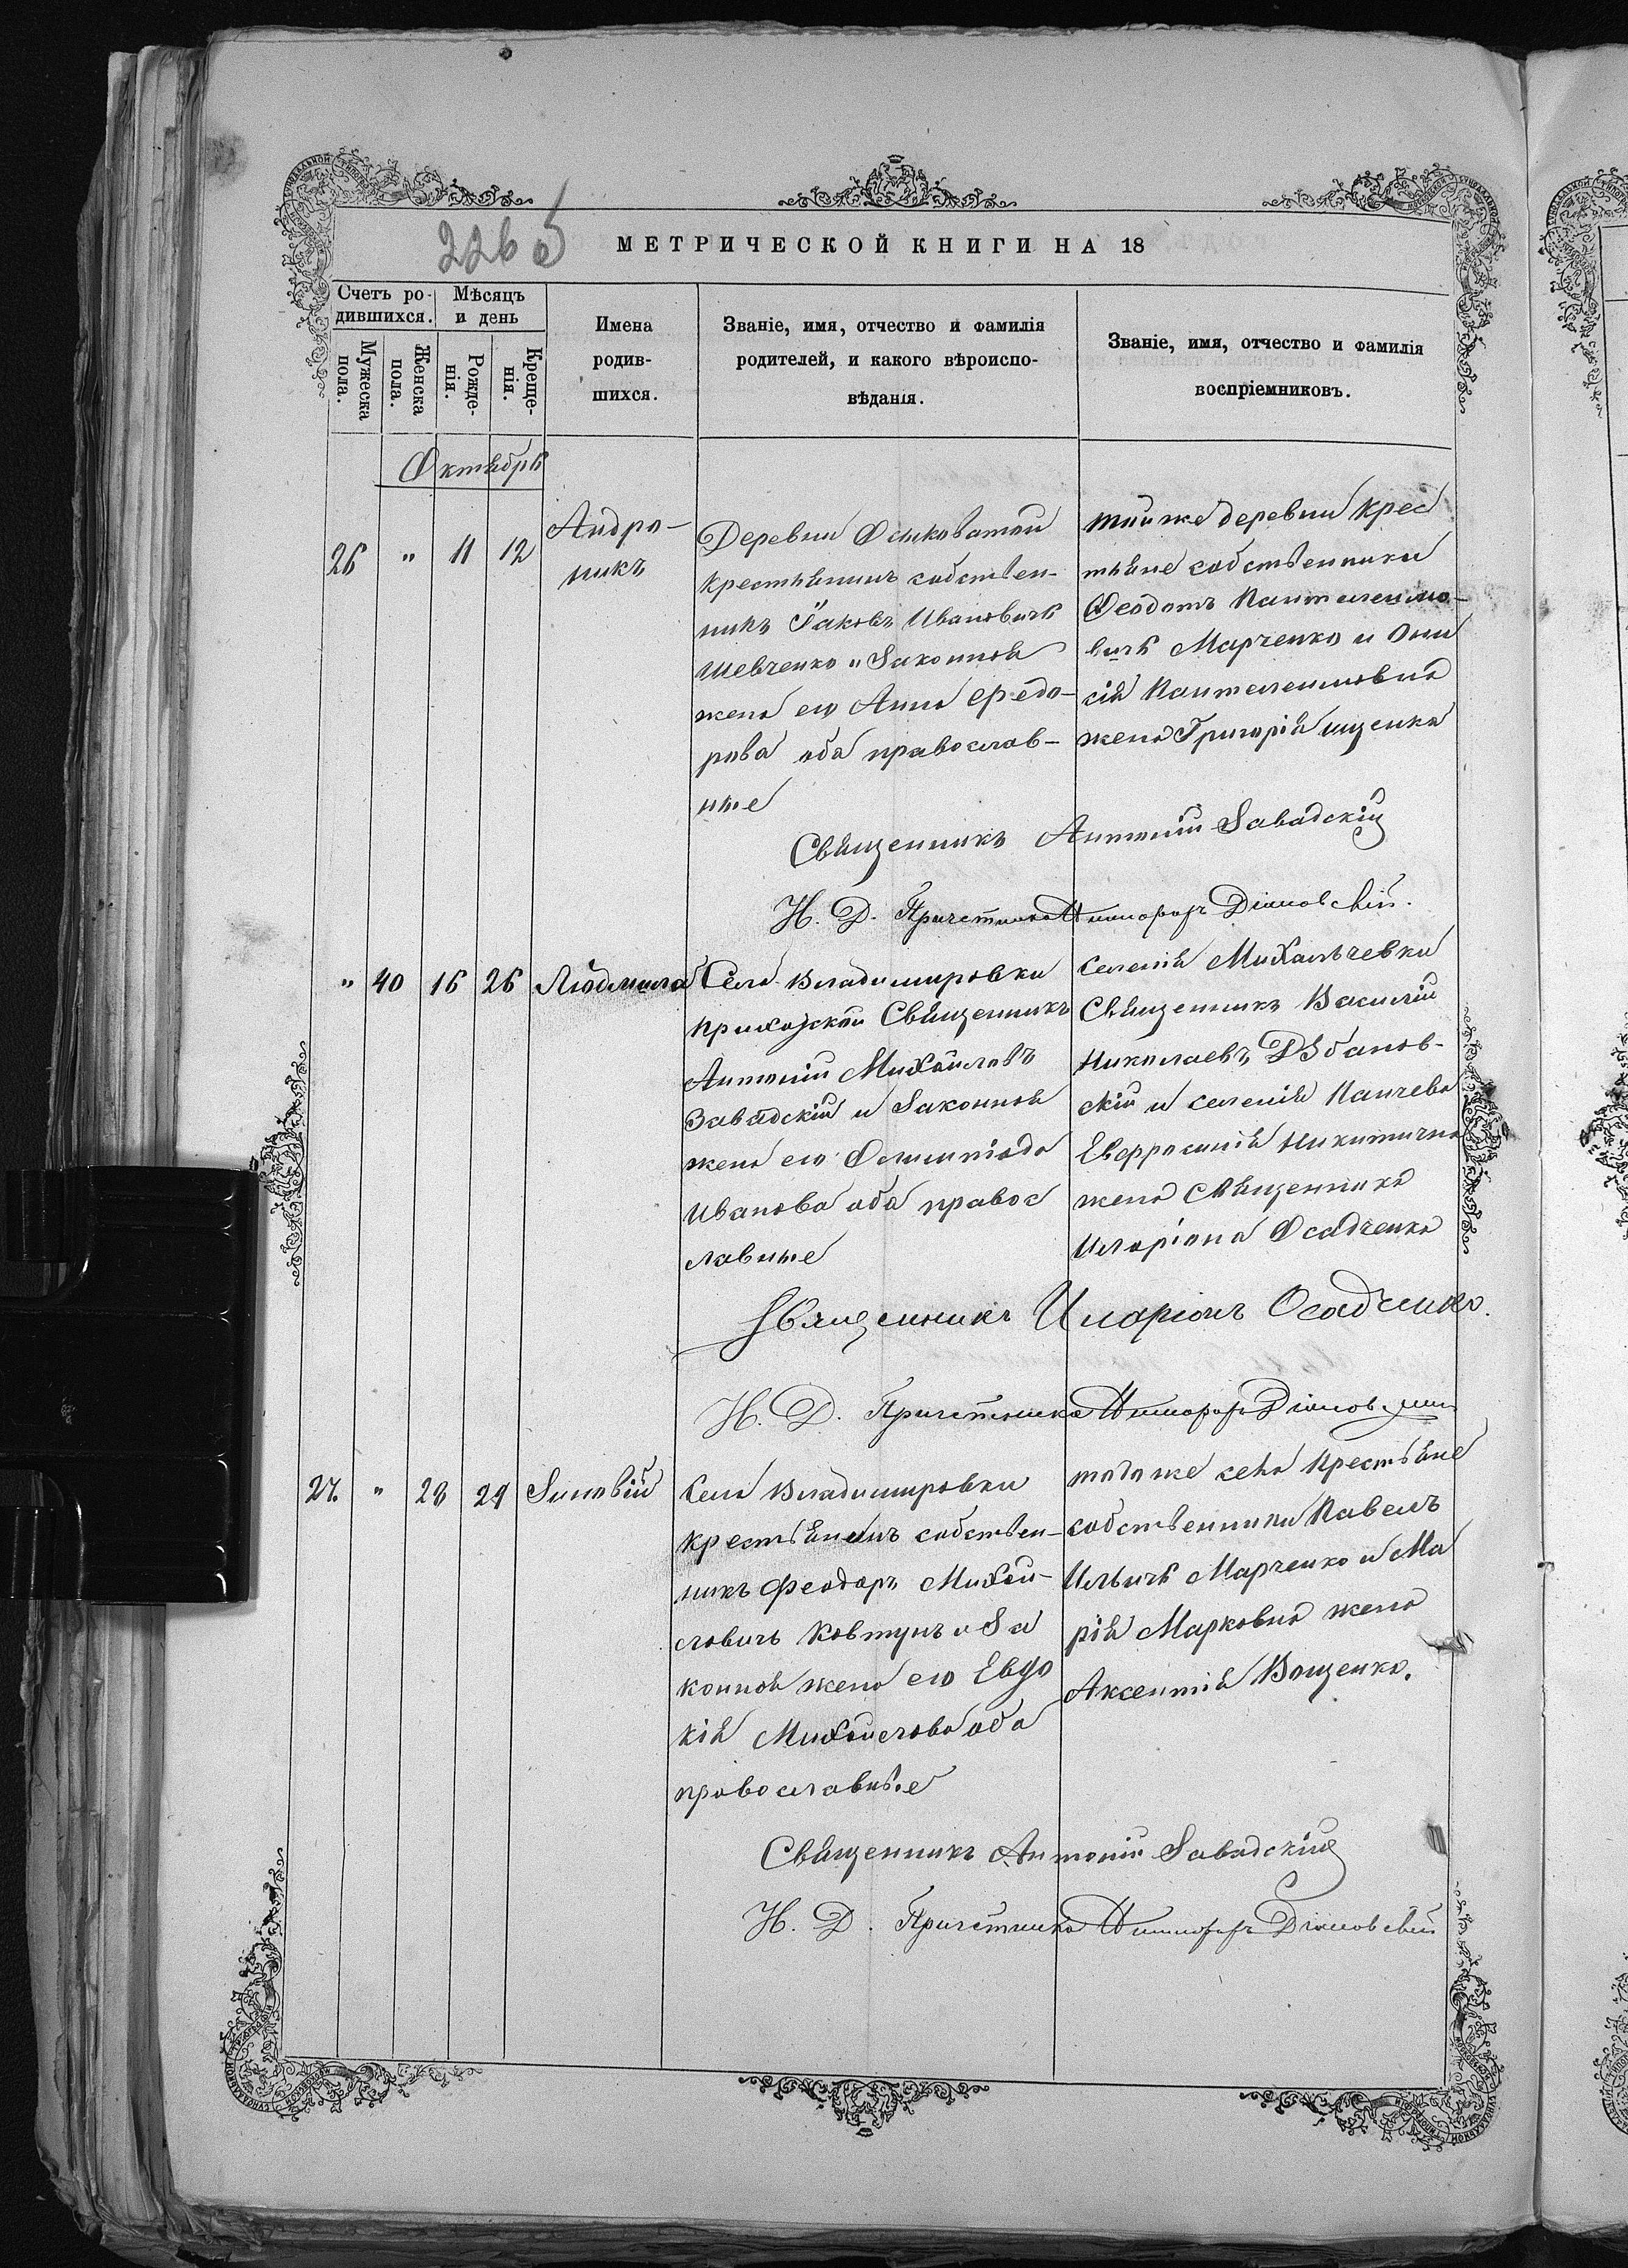 226 об
МЕТРИЧЕСКОЙ КНИГИ НА 18
Счетъ ро-
дившихся.
Мѣсяцъ
и день
Мужеска
пола.
Женска
пола.
Рожде-
нія.
Креще-
нія.
Имена
родив-
шихся.
Званіе, имя, отчество и фамилія
родителей, и какого вѣроиспо-
вѣданія.
Званіе, имя, отчество и фамилія
воспріемниковъ.
Октябрь
26 " 11 12
Андро-
никъ
Деревни Осиковатой
крестьянинъ собствен-
никъ Іаковъ Ивановичъ
Шевченко и законная
жена его Анна Федо-
рова оба православ-
ные
тойже деревни крес
тьяне собственники
Феодотъ Пантелеимо-
вичъ Марченко и Они
сія Пантелеимовна
жена Григорія Ищенка
Священникъ Антоній Завадскій
Н. Д. Причетника
" 40 16 26 Людмила
Села Владимировки
приходскій Священникъ
Антоній Михайловъ
Завадскій и законная
жена его Олимпіада
Иванова оба правос
лавные
селенія Михальчевки
Священникъ Василій
Николаевъ Дзбанов-
скій и селенія Панчева
Евфросинія Никитична
жена Священника
Иларіона Осадченка
Священникъ Иларіонъ Осадченко.
Н. Д. Причетника
27. " 28 29 Зиновій
Села Владимировки
крестьянинъ собствен-
никъ Феодоръ Михай-
ловичъ Ковтунъ и За
конная жена его Евдо
кія Михайлова оба
православные
тогоже села крестьяне
собственники Павелъ
Ильичъ Марченко и Ма
рія Маркова жена
Аксентія Ващенко.
Священникъ Антоній Завадскій
Н. Д. Причетника